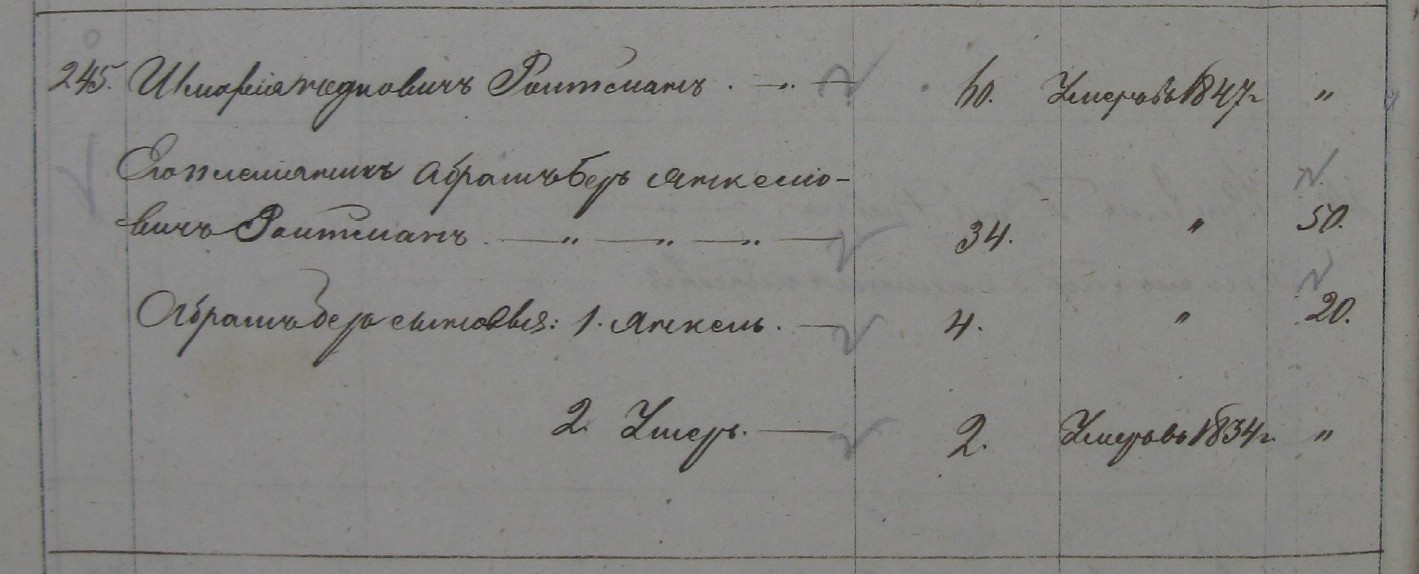 245. Шмарiя Нефуловичъ Роитманъ. — „ — 60. Умеръ въ 1847 г „
Его племянникъ Абрамъ Беръ Янкело-
вичъ Роитманъ. — „ — „ — „ — 34. „ 50.
Абрамъ Бера сыновья: 1. Янкель. — 4. „ 20.
2. Умеръ. — 2. Умеръ въ 1834 г. „